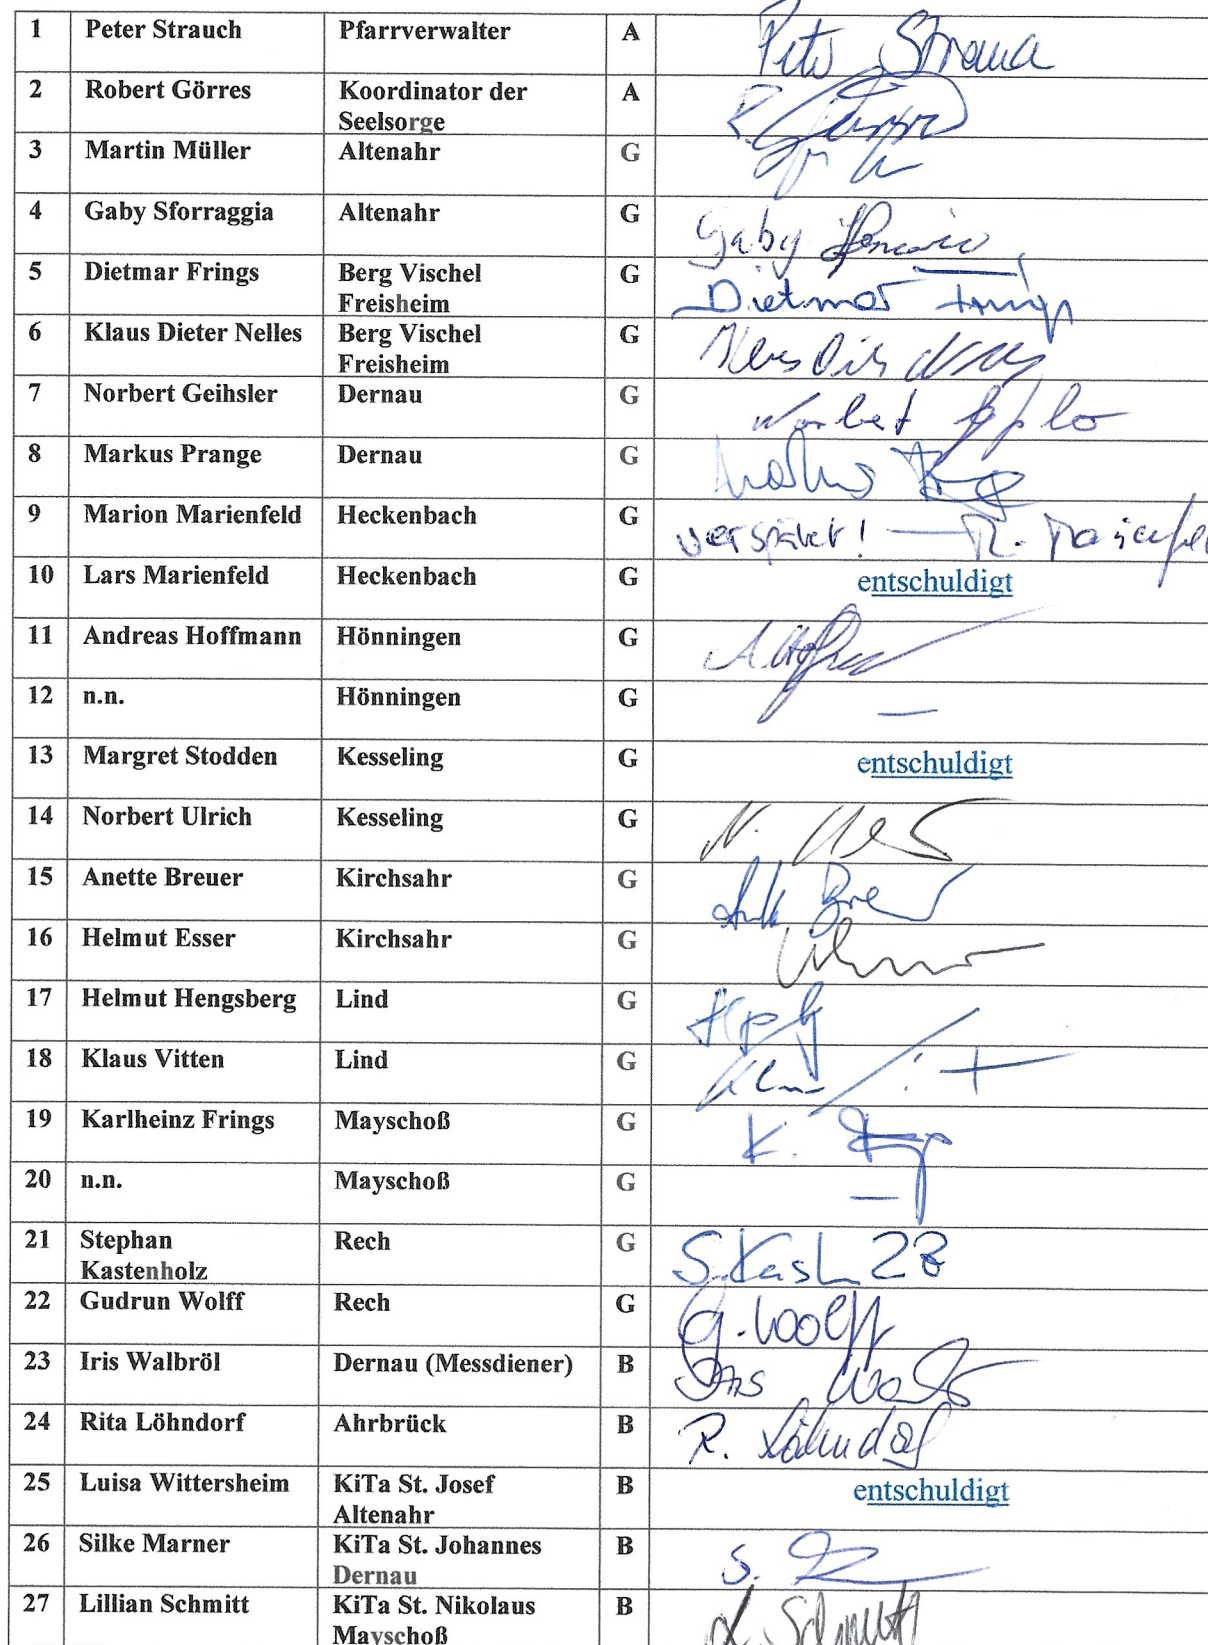 1 Peter Strauch Pfarrverwalter A Peter Strauch
2 Robert Görres Koordinator der A R. Görres
Seelsorge
3 Martin Müller Altenahr G
4 Gaby Sforraggia Altenahr G Gaby
5 Dietmar Frings Berg Vischel G Dietmar Frings
Freisheim
6 Klaus Dieter Nelles Berg Vischel G
Freisheim
7 Norbert Geihsler Dernau G Norbert
8 Markus Prange Dernau G Markus
9 Marion Marienfeld Heckenbach G verspätet! — M. Marienfel
10 Lars Marienfeld Heckenbach G entschuldigt
11 Andreas Hoffmann Hönningen G
12 n.n. Hönningen G —
13 Margret Stodden Kesseling G entschuldigt
14 Norbert Ulrich Kesseling G N.
15 Anette Breuer Kirchsahr G
16 Helmut Esser Kirchsahr G
17 Helmut Hengsberg Lind G
18 Klaus Vitten Lind G
19 Karlheinz Frings Mayschoß G K.
20 n.n. Mayschoß G —
21 Stephan Rech G S. Kast
Kastenholz
22 Gudrun Wolff Rech G G. Wolff
23 Iris Walbröl Dernau (Messdiener) B Iris
24 Rita Löhndorf Ahrbrück B R. Löhndorf
25 Luisa Wittersheim KiTa St. Josef B entschuldigt
Altenahr
26 Silke Marner KiTa St. Johannes B S.
Dernau
27 Lillian Schmitt KiTa St. Nikolaus B L. Schmitt
Mayschoß